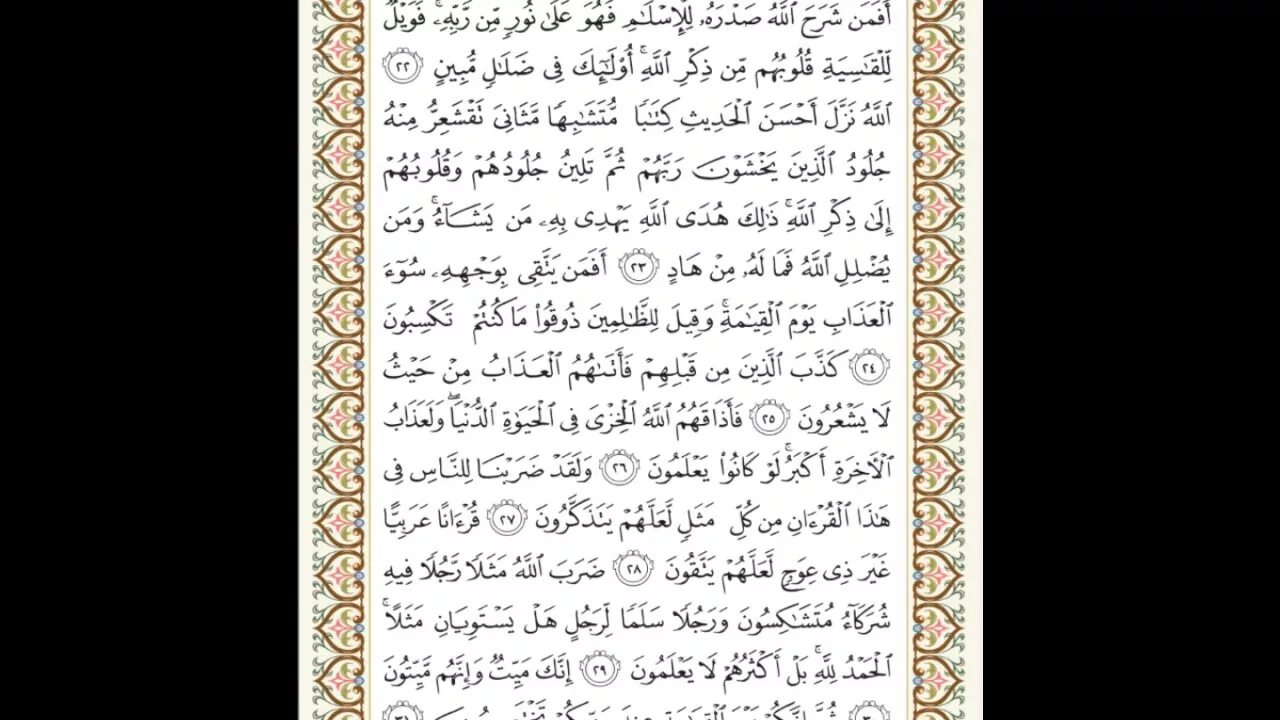 أَفَمَن شَرَحَ ٱللَّهُ صَدْرَهُۥ لِلْإِسْلَٰمِ فَهُوَ عَلَىٰ نُورٍ مِّن رَّبِّهِۦ ۚ فَوَيْلٌ
لِّلْقَٰسِيَةِ قُلُوبُهُم مِّن ذِكْرِ ٱللَّهِ ۚ أُو۟لَٰٓئِكَ فِى ضَلَٰلٍ مُّبِينٍ ٢٢
ٱللَّهُ نَزَّلَ أَحْسَنَ ٱلْحَدِيثِ كِتَٰبًا مُّتَشَٰبِهًا مَّثَانِىَ تَقْشَعِرُّ مِنْهُ
جُلُودُ ٱلَّذِينَ يَخْشَوْنَ رَبَّهُمْ ثُمَّ تَلِينُ جُلُودُهُمْ وَقُلُوبُهُمْ
إِلَىٰ ذِكْرِ ٱللَّهِ ۚ ذَٰلِكَ هُدَى ٱللَّهِ يَهْدِى بِهِۦ مَن يَشَآءُ ۚ وَمَن
يُضْلِلِ ٱللَّهُ فَمَا لَهُۥ مِنْ هَادٍ ٢٣ أَفَمَن يَتَّقِى بِوَجْهِهِۦ سُوٓءَ
ٱلْعَذَابِ يَوْمَ ٱلْقِيَٰمَةِ ۚ وَقِيلَ لِلظَّٰلِمِينَ ذُوقُوا۟ مَا كُنتُمْ تَكْسِبُونَ
٢٤ كَذَّبَ ٱلَّذِينَ مِن قَبْلِهِمْ فَأَتَىٰهُمُ ٱلْعَذَابُ مِنْ حَيْثُ
لَا يَشْعُرُونَ ٢٥ فَأَذَاقَهُمُ ٱللَّهُ ٱلْخِزْىَ فِى ٱلْحَيَوٰةِ ٱلدُّنْيَا ۖ وَلَعَذَابُ
ٱلْءَاخِرَةِ أَكْبَرُ ۚ لَوْ كَانُوا۟ يَعْلَمُونَ ٢٦ وَلَقَدْ ضَرَبْنَا لِلنَّاسِ فِى
هَٰذَا ٱلْقُرْءَانِ مِن كُلِّ مَثَلٍ لَّعَلَّهُمْ يَتَذَكَّرُونَ ٢٧ قُرْءَانًا عَرَبِيًّا
غَيْرَ ذِى عِوَجٍ لَّعَلَّهُمْ يَتَّقُونَ ٢٨ ضَرَبَ ٱللَّهُ مَثَلًا رَّجُلًا فِيهِ
شُرَكَآءُ مُتَشَٰكِسُونَ وَرَجُلًا سَلَمًا لِّرَجُلٍ هَلْ يَسْتَوِيَانِ مَثَلًا ۚ
ٱلْحَمْدُ لِلَّهِ ۚ بَلْ أَكْثَرُهُمْ لَا يَعْلَمُونَ ٢٩ إِنَّكَ مَيِّتٌ وَإِنَّهُم مَّيِّتُونَ